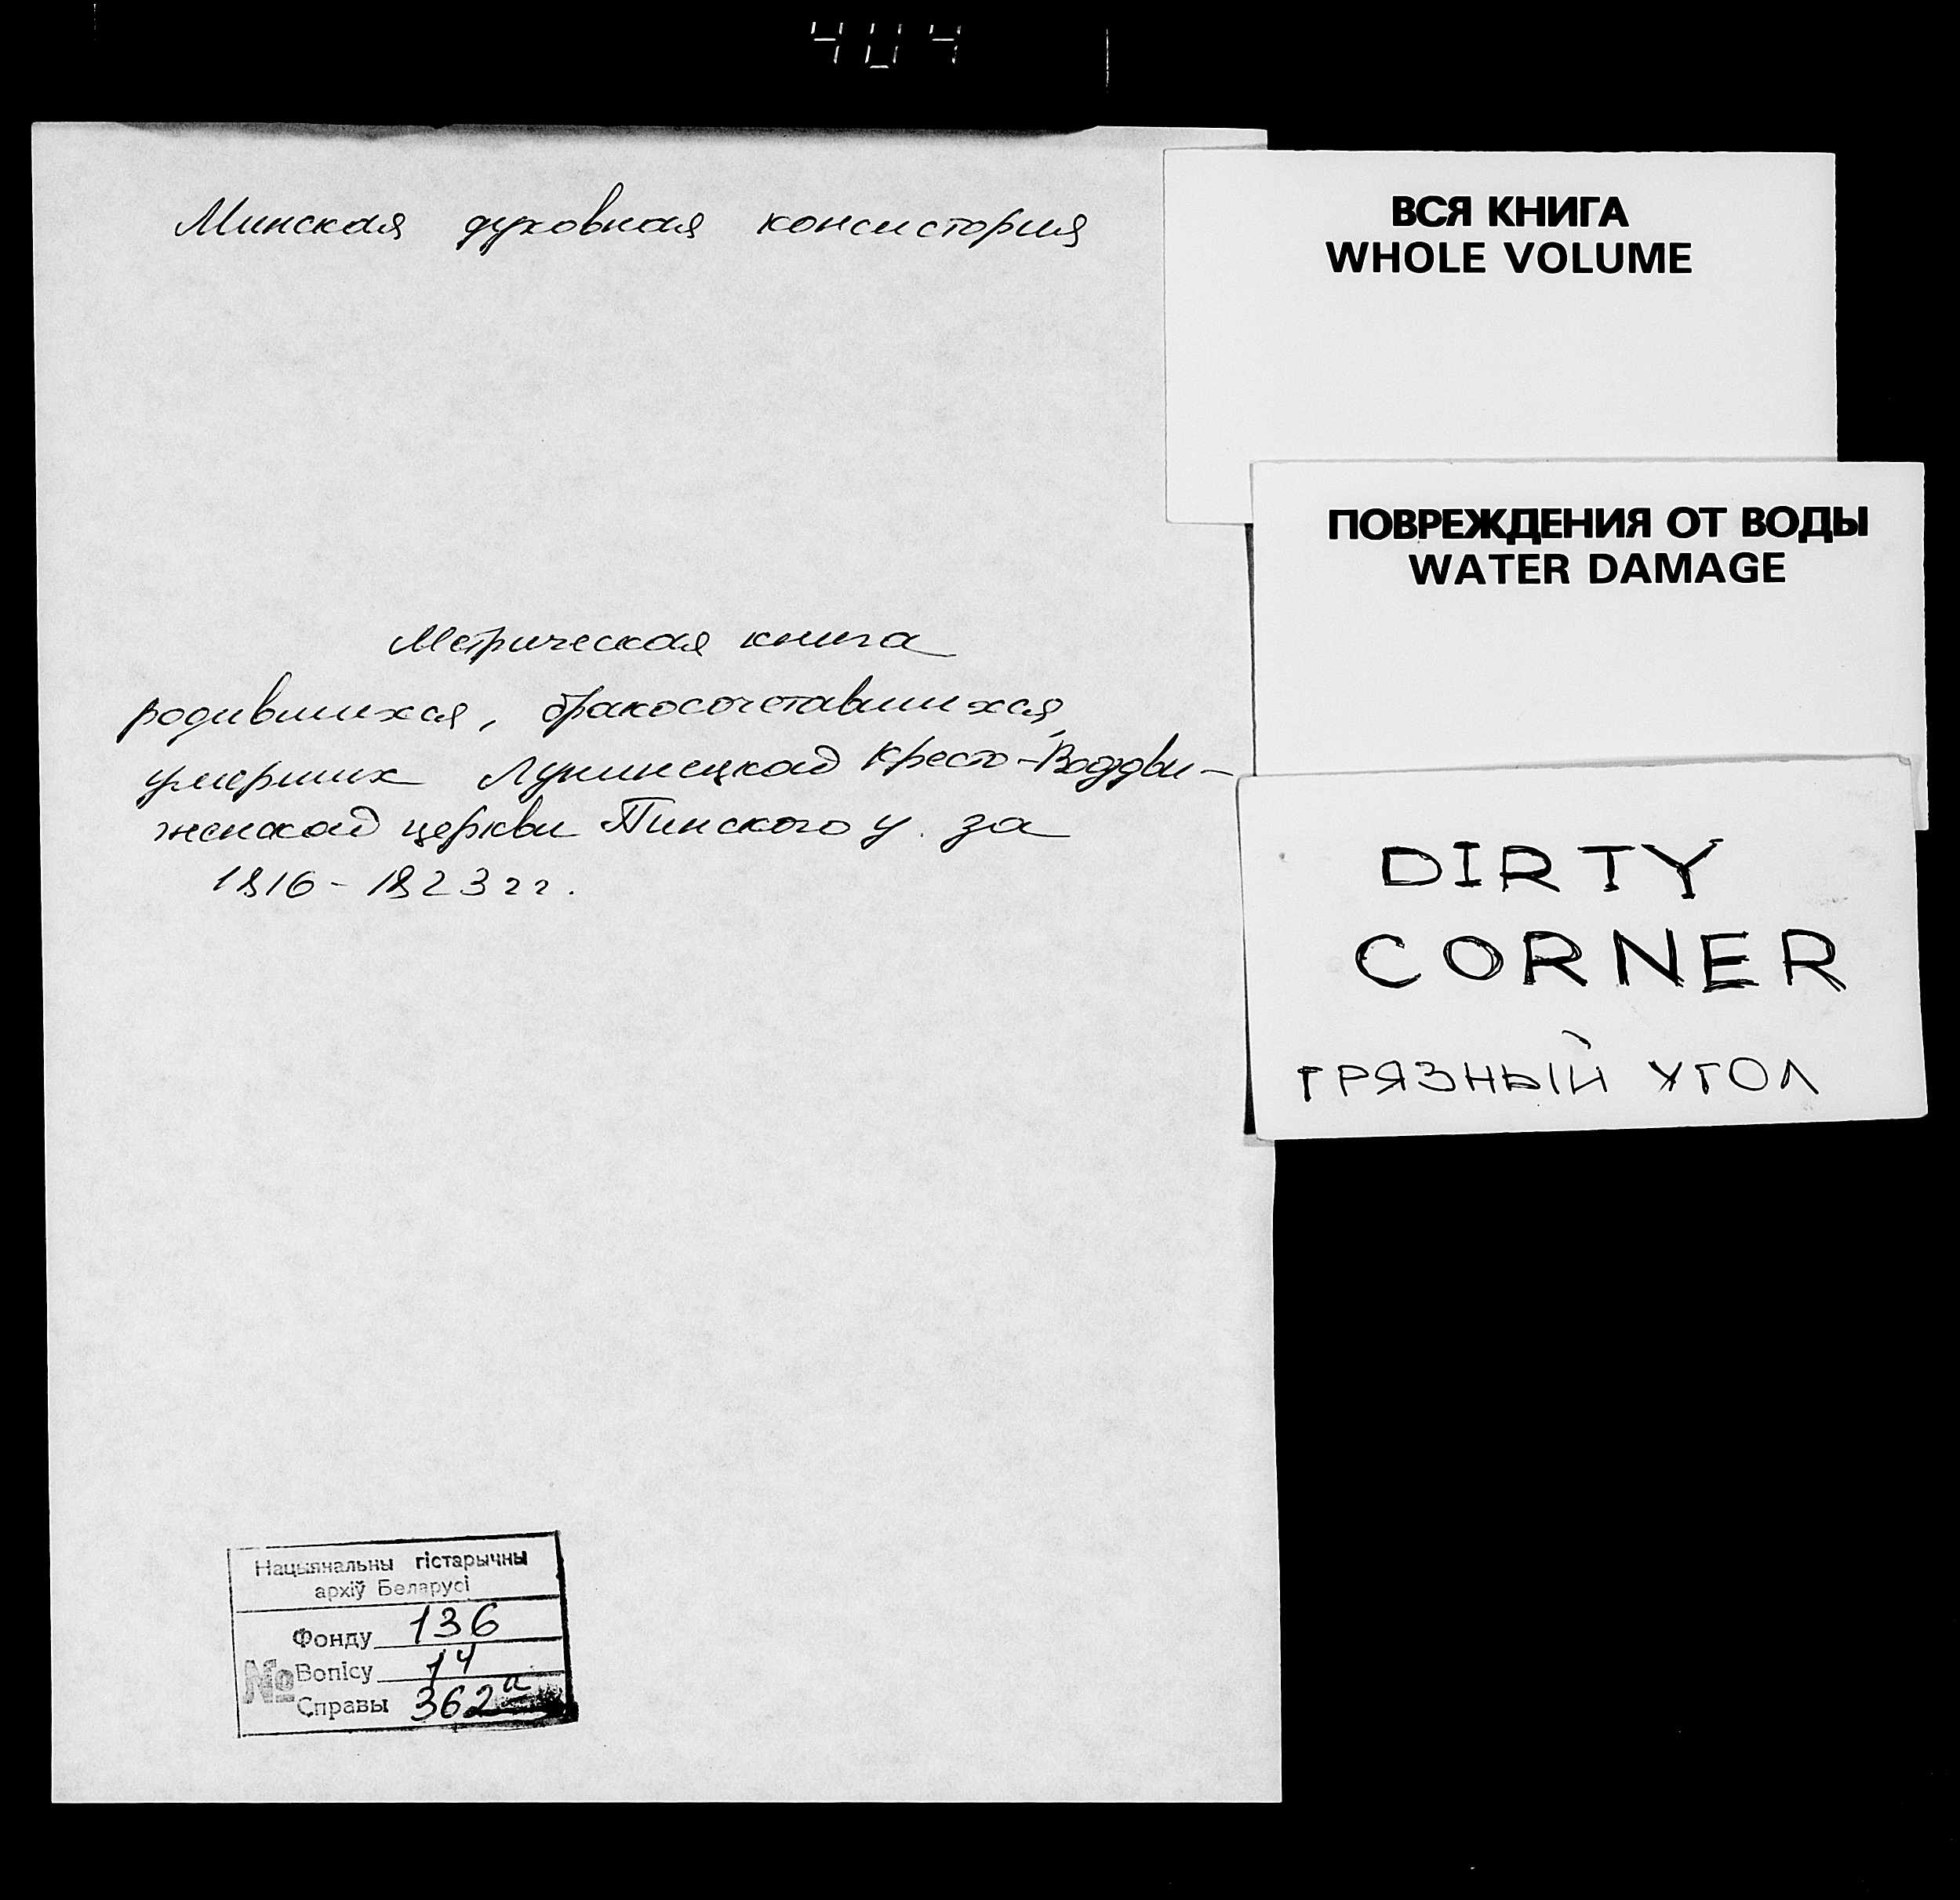 404
Минская духовная консистория
Метрическая книга
родившихся, бракосочетавшихся,
умерших Лунинецкой Кресто-Воздви-
женской церкви Пинского у. за
1816 - 1823 гг.
Нацыянальны гістарычны
архіў Беларусі
Фонду 136
№ Вопісу 14
Справы 362а
ВСЯ КНИГА
WHOLE VOLUME
ПОВРЕЖДЕНИЯ ОТ ВОДЫ
WATER DAMAGE
DIRTY
CORNER
ГРЯЗНЫЙ УГОЛ